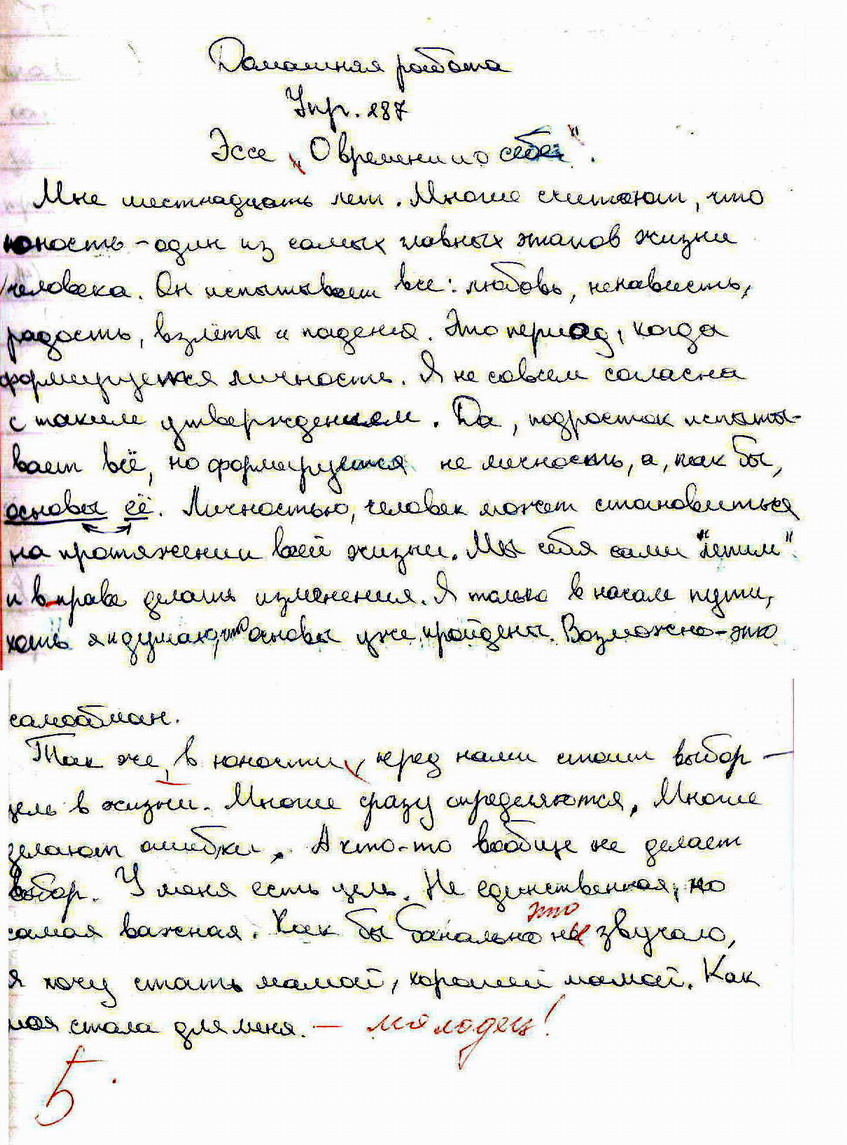 Домашняя работа
Упр. 287
Эссе „О времени и о себе".
Мне шестнадцать лет. Многие считают, что
юность – один из самых главных этапов жизни
человека. Он испытывает все: любовь, ненависть,
радость, взлёты и падения. Это период, когда
формируется личность. Я не совсем согласна
с таким утверждением. Да, подросток испыты-
вает всё, но формируется не личность, а, так бы,
основы её. Личностью, человек может становиться
на протяжении всей жизни. Мы себя сами "лепим"
и в праве делать изменения. Я только в начале пути,
хоть я и думаю, что основы уже пройдены. Возможно – это
самообман.
Так же, в юности, перед нами стоит выбор –
цель в жизни. Многие сразу определяются, Многие
делают ошибки, А кто-то вообще не делает
выбор. У меня есть цель. Не единственная, но
самая важная. Как бы банально это не звучало,
я хочу стать мамой, хорошей мамой. Как
моя стала для меня. – молодец!
5.